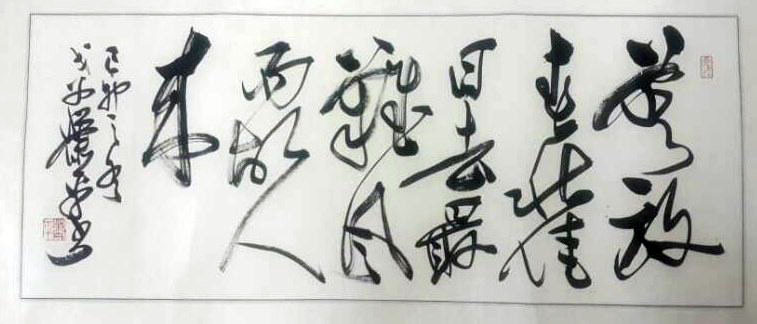 莫放
春秋佳
日去最
難風
雨故人
来
己卯之
書